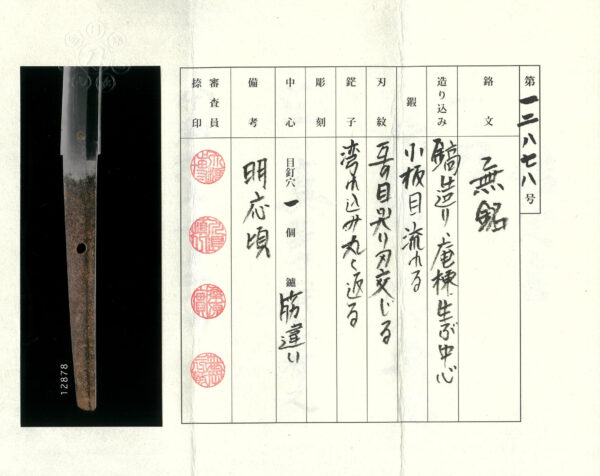 第一二八七八号
銘文 無銘
造り込み 鎬造り、庵棟、生ぶ中心
鍛 小板目流れる
刃紋 互の目尖り刃交じる
鋩子 湾れ込み丸く返る
彫刻
中心 目釘穴 一個 鑢 筋違い
備考 明応頃
審査員捺印
12878